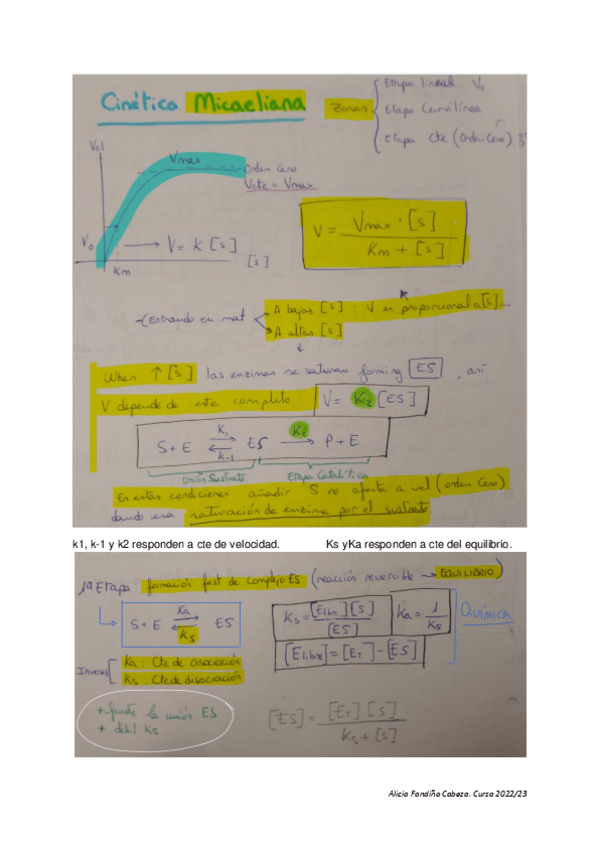 Cinética Micaeliana
Zonas
Etapa lineal V₀
Etapa Curvilínea
Etapa Cte (Orden Cero)
Vel
Vmax
Orden Cero
Vcte = Vmax
V₀
→ V = k [S]
Km
[S]
V = Vmax · [S] / Km + [S]
Entrando en mat
A bajas [S] : V es proporcional a [S]
A altas [S]
↓
When ↑ [S] las enzimas se saturan forming [ES], así
V depende de este complejo: V = K₂ [ES]
S + E ⇌ ES → P + E
K₁
K-1
K₂
Unión Sustrato
Etapa Catalítica
En estas condiciones añadir S no afecta a vel (orden Cero)
dando una saturación de enzima por el sustrato
k1, k-1 y k2 responden a cte de velocidad. Ks yKa responden a cte del equilibrio.
1ª Etapa: formación fast de complejo ES (reacción reversible → EQUILIBRIO)
S + E ⇌ ES
Ka
Ks
Ks = [Elibre][S] / [ES]
Ka = 1 / Ks
Química
[Elibre] = [ET] - [ES]
Inversos
Ka: Cte de asociación
Ks: Cte de disociación
+ fuerte la unión ES
+ débil Ks
[ES] = [ET][S] / Ks + [S]
Alicia Fandiño Cabeza. Curso 2022/23